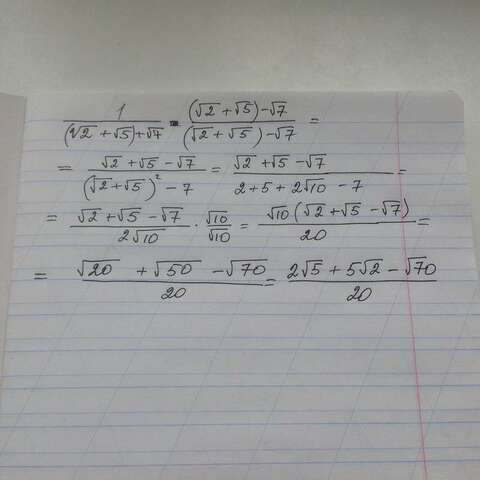 1/((√2 + √5) + √7) · ((√2 + √5) - √7)/((√2 + √5) - √7) =
= (√2 + √5 - √7)/((√2 + √5)² - 7) = (√2 + √5 - √7)/(2 + 5 + 2√10 - 7) =
= (√2 + √5 - √7)/(2√10) · √10/√10 = (√10(√2 + √5 - √7))/20 =
= (√20 + √50 - √70)/20 = (2√5 + 5√2 - √70)/20